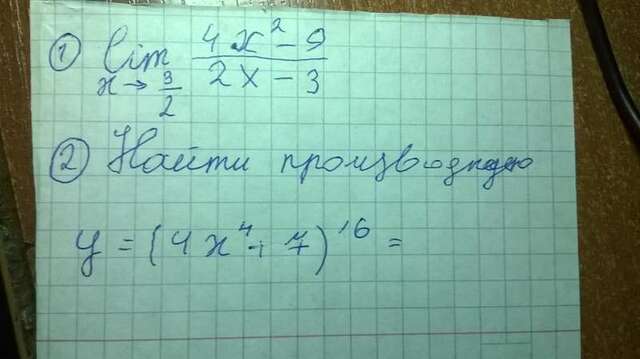 ① lim x→3/2 (4x²-9)/(2x-3)
② Найти производную
y = (4x⁴+7)¹⁶ =